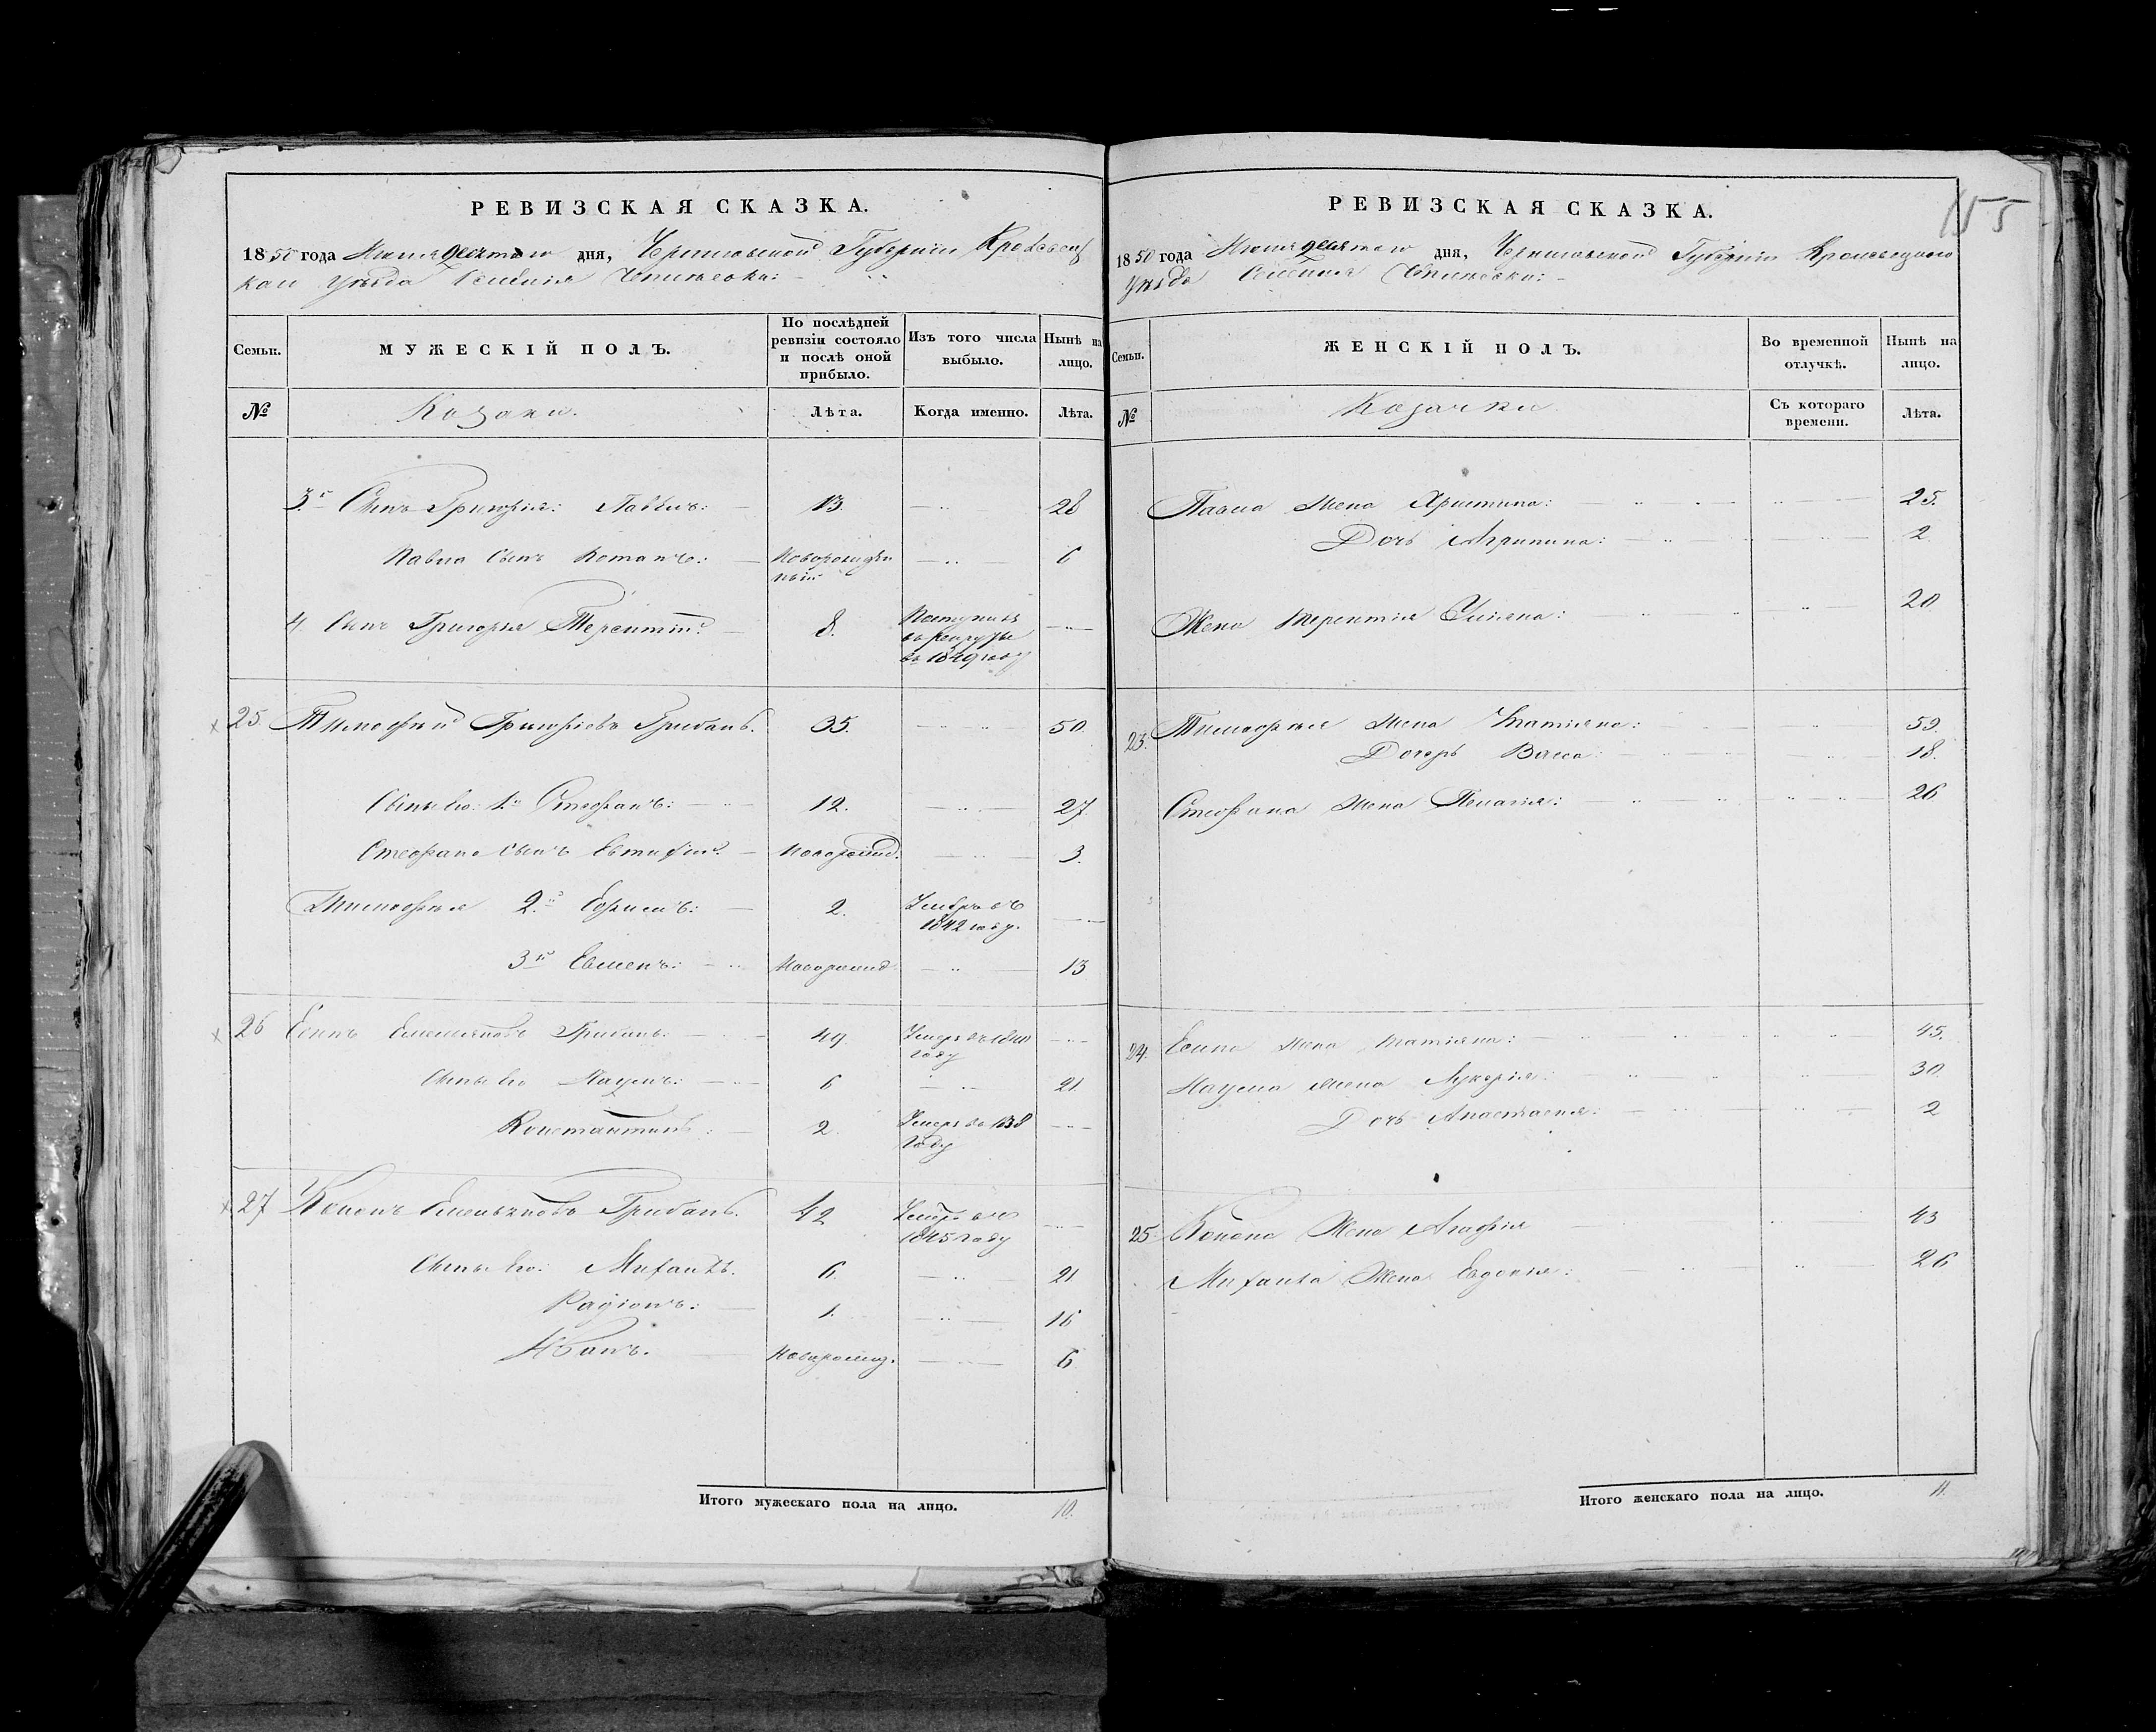 155
РЕВИЗСКАЯ СКАЗКА.
1850 года Июня девятаго дня, Черниговской Губерніи Кролевец
каго Уѣзда Селенія
Семьи.
МУЖЕСКІЙ ПОЛЪ.
По послѣдней ревизіи состояло и послѣ оной прибыло.
Изъ того числа выбыло.
Нынѣ на лицо.
№
Козаки.
Лѣта.
Когда именно.
Лѣта.
3й Сынъ Григорія: Павелъ: 13. 28
Павла Сынъ Романъ: Новорожден
ный 6
4. Сынъ Григорія Терентій: 8. Поступилъ
въ рекруты
въ 1849 году
25 Тимофей Григорьевъ Грибанъ. 35. 50
Сынъ его: 1й Стефанъ: 12. 27
Стефана Сынъ Евтифій. Новорожд. 3.
Тимофея 2й Ефимъ: 2. Умеръ въ
1842 году.
3й Евменъ: Новорожд. 13
26 Есипъ Емельяновъ Грибанъ: 49 Умеръ въ
году
Сынъ его Наумъ: 6 21
Константинъ: 2. Умеръ въ 1838
году
27 Кононъ Емельяновъ Грибанъ. 42 Умеръ въ
1845 году
Сынъ его: 6. 21
Радіонъ: 1. 16
Иванъ. Новорожд. 6
Итого мужескаго пола на лицо. 10.
РЕВИЗСКАЯ СКАЗКА.
1850 года Июня девятаго дня, Черниговской Губерніи Кролевецкаго
Уѣзда Селенія
Семьи.
ЖЕНСКІЙ ПОЛЪ.
Во временной отлучкѣ.
Нынѣ на лицо.
№
Козачки
Съ котораго времени.
Лѣта.
Павла Жена Христина: 25.
Дочь Агрипина: 2
Жена Терентія Уліяна: 20
23. Тимофея Жена Татіяна: 59.
Дочерь Васса: 18.
Стефана Жена Пелагія: 26
24. Есипа Жена Татіяна: 45.
Наума Жена Лукерія: 30
Дочь Анастасія: 2
25. Конона Жена Агафія 43
Жена Евдокія: 26
Итого женскаго пола на лицо. 11.